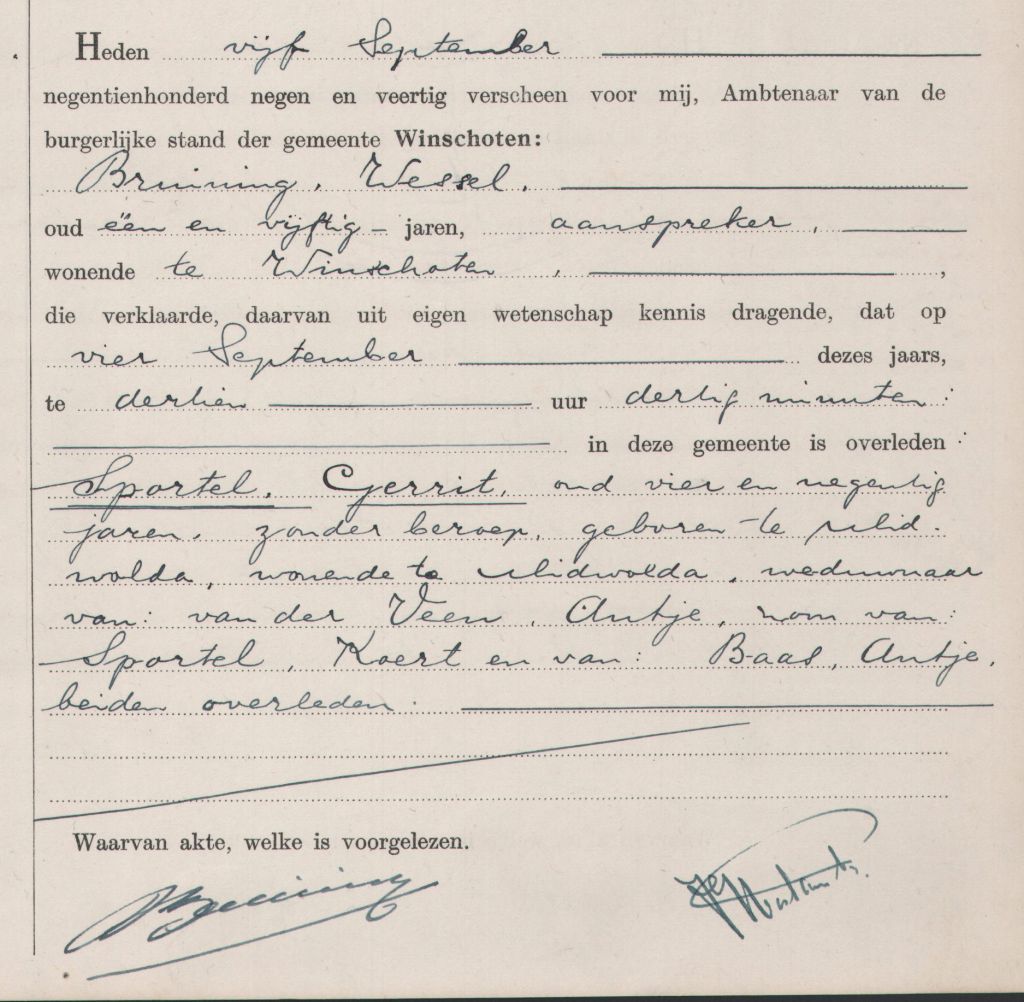 Heden vijf September
negentienhonderd negen en veertig verscheen voor mij, Ambtenaar van de
burgerlijke stand der gemeente Winschoten:
Bruining, Wessel,
oud één en vijftig - jaren, aanspreker,
wonende te Winschoten ,
die verklaarde, daarvan uit eigen wetenschap kennis dragende, dat op
vier September dezes jaars,
te dertien uur dertig minuten:
in deze gemeente is overleden :
Sportel, Gerrit, oud vier en negentig
jaren, zonder beroep, geboren te Mid-
wolda, wonende te Midwolda, weduwnaar
van: van der Veen, Antje, zoon van:
Sportel, Koert en van: Baas, Antje,
beiden overleden.
Waarvan akte, welke is voorgelezen.
WBruining